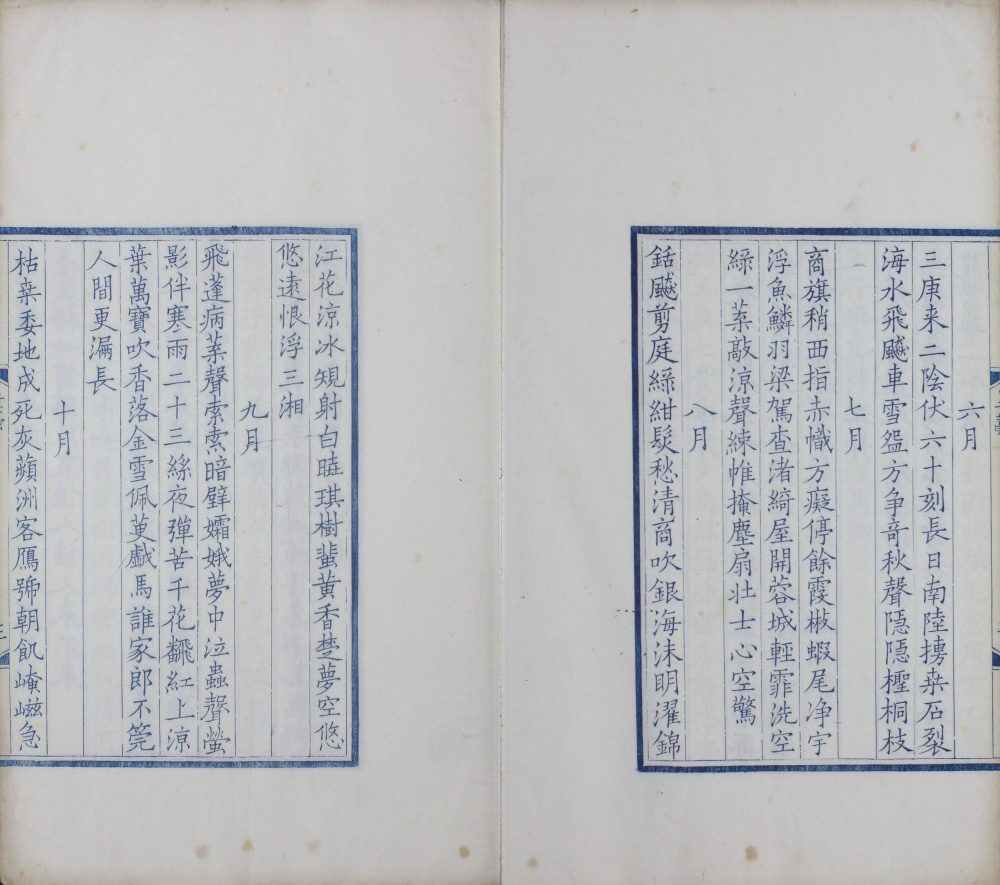 六月
三庚来二陰伏六十刻長日南陸搒桒石裂
海水飛飈車雪㿿方争奇秋聲隱隱檉桐枝
七月
商旗稍西指赤幟方癡停餘霞楸蝦尾净宇
浮魚鱗羽梁駕查渚綺屋開蓉城輕霏洗空
綠一葉敲涼聲練帷掩塵扇壯士心空驚
八月
銛飈剪庭綠紺髮愁清商吹銀海沫明濯錦
江花涼冰䂓射白曉琪樹蜚黄香楚夢空悠
悠遠恨浮三湘
九月
飛蓬病葉聲索索暗壁孀娥夢中泣蟲聲螢
影伴寒雨二十三絲夜彈苦千花飜紅上涼
葉萬寶吹香落金雪佩萸戲馬誰家郎不筦
人間更漏長
十月
枯桒委地成死灰蘋洲客鴈號朝飢崦嵫急